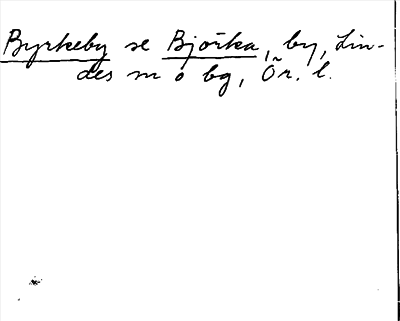 Byrkeby se Björka, by, Lin-
des m o bg, Ör. l.